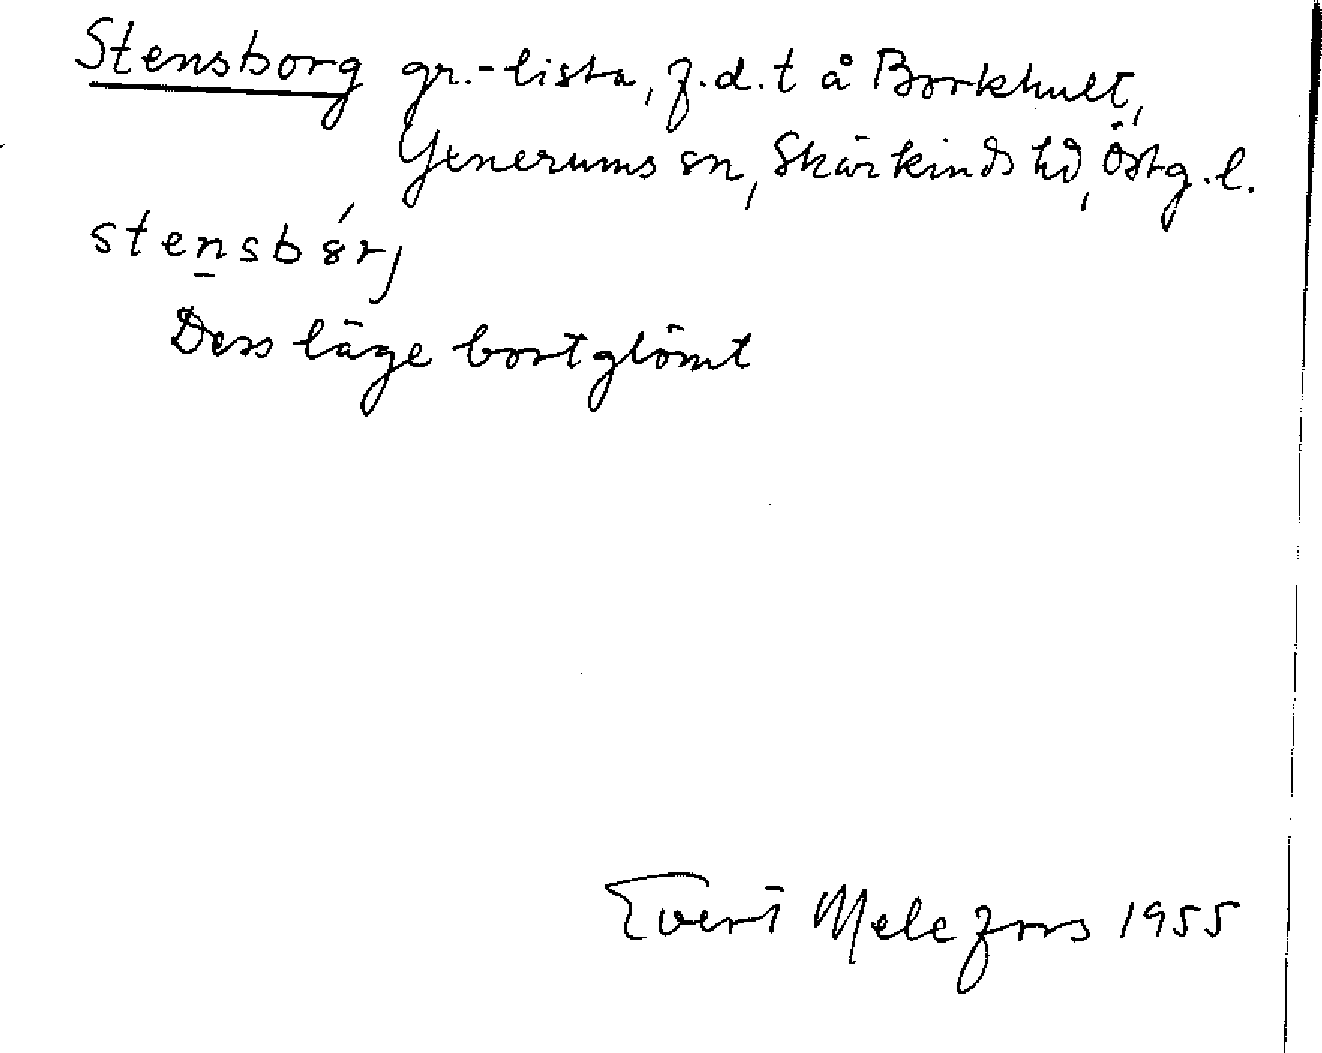 Stensborg gr.-lista, f.d.t å Borkhult,
Yxnerums sn, Skärkinds hd, Östg.l.
stensbórj
Dess läge bortglömt
Evert Melefors 1955